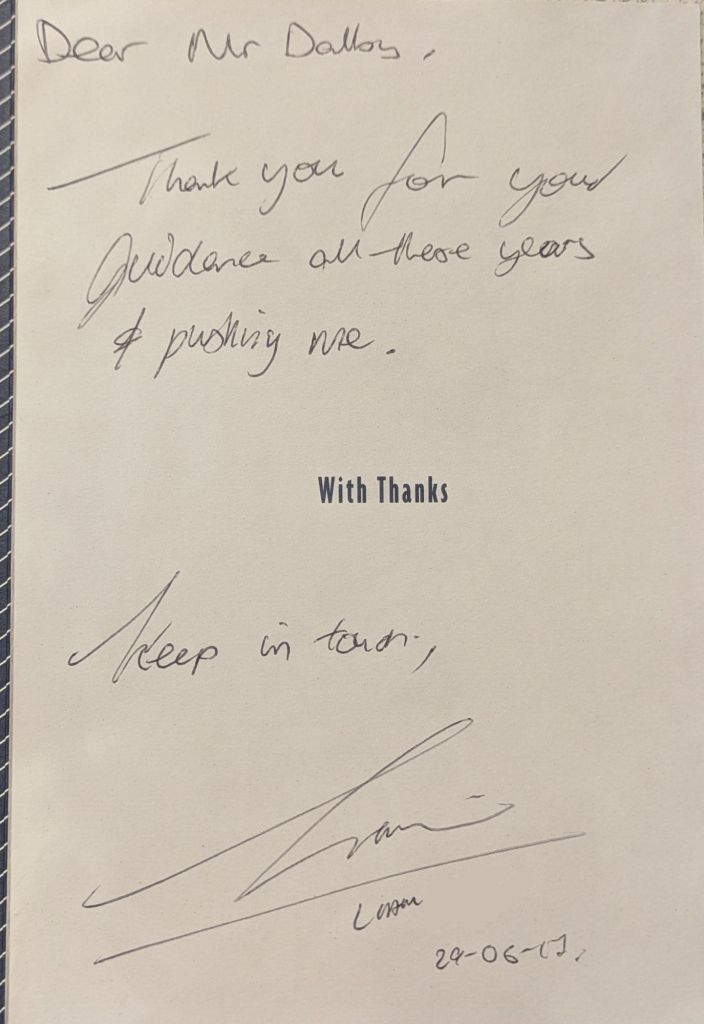 Dear Mr Dalloy,
Thank you for your
Guidance all these years
& pushing me.
With Thanks
Keep in touch,
29-06-17.